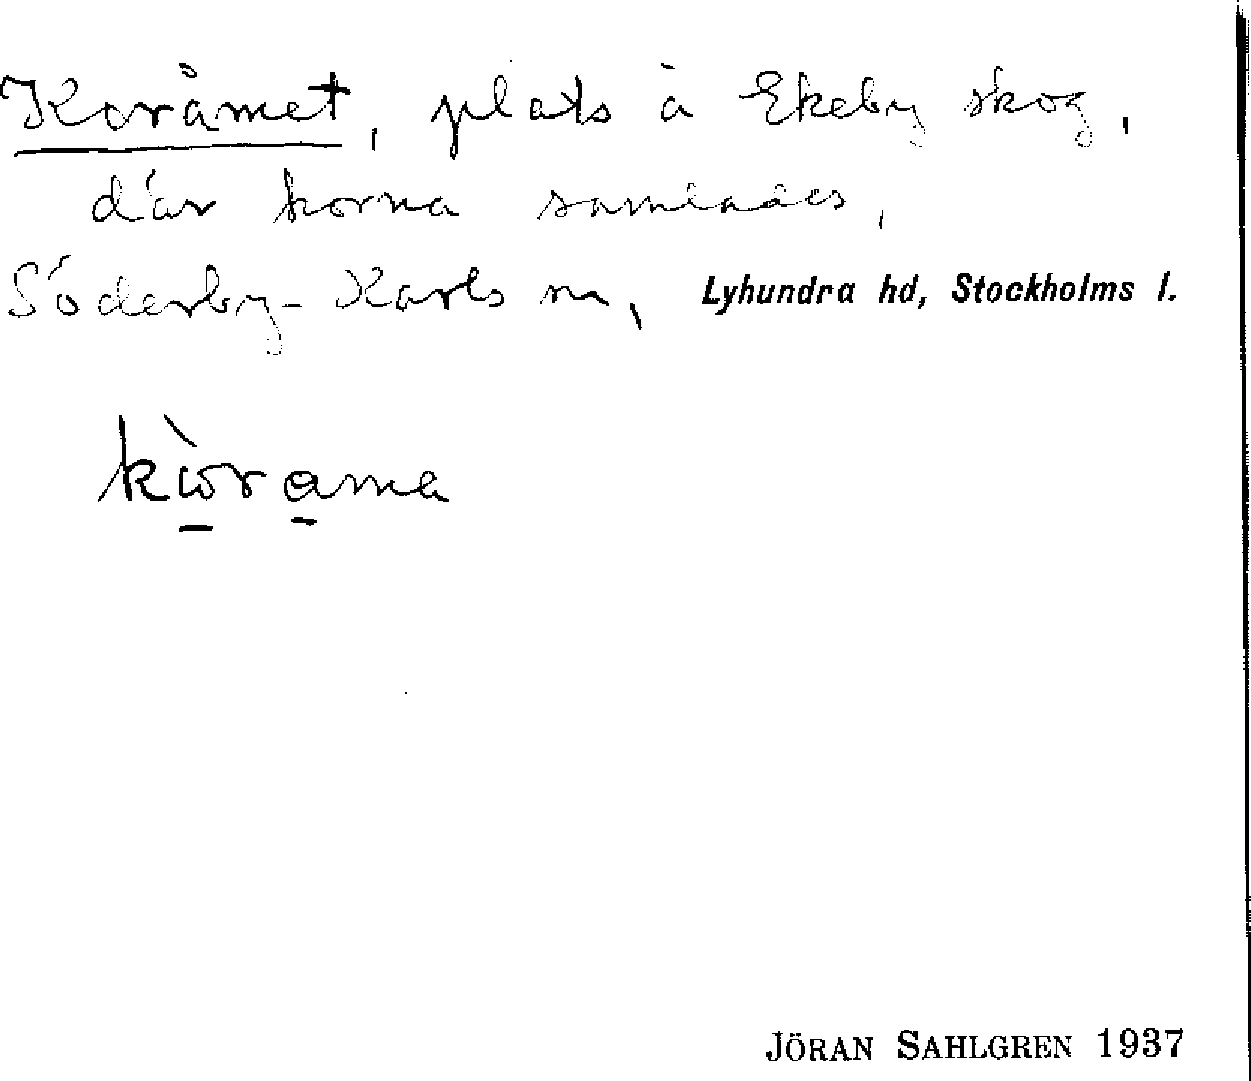 Koråmet, plats å Ekeby skog,
där korna samlades,
Söderby-Karls sn, Lyhundra hd, Stockholms l.
kὼrama
JÖRAN SAHLGREN 1937